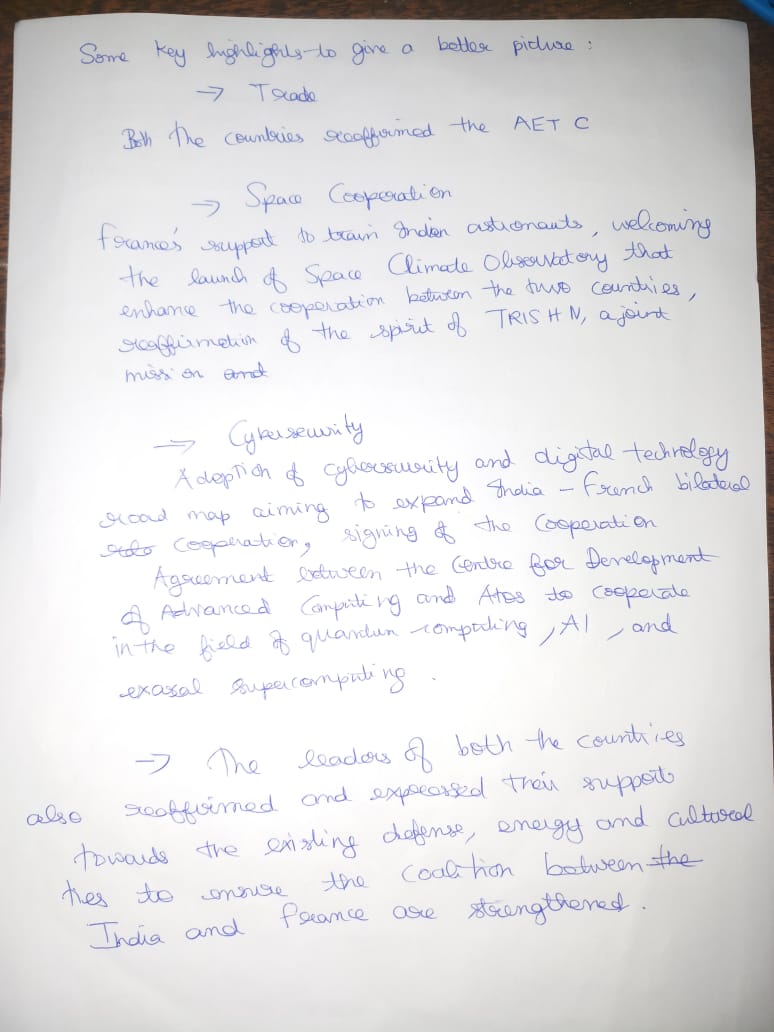 Some key highlights to give a better picture :
→ Trade
Both The countries reaffirmed the AETC
→ Space Cooperation
France's support to train Indian astronauts, welcoming
the launch of Space Climate Observatory that
enhance the cooperation between the two countries,
reaffirmation of the spirit of TRISHN, a joint
mission and
→ Cybersecurity
Adoption of cybersecurity and digital technology
road map aiming to expand India - French bilateral
cooperation, signing of the Cooperation
Agreement between the Centre for Development
of Advanced Computing and Atos to cooperate
in the field of quantum computing, AI, and
exasal supercomputing.
→ The leaders of both the countries
also reaffirmed and expressed their support
towards the existing defense, energy and cultural
ties to ensure the coalition between the
India and France are strengthened.